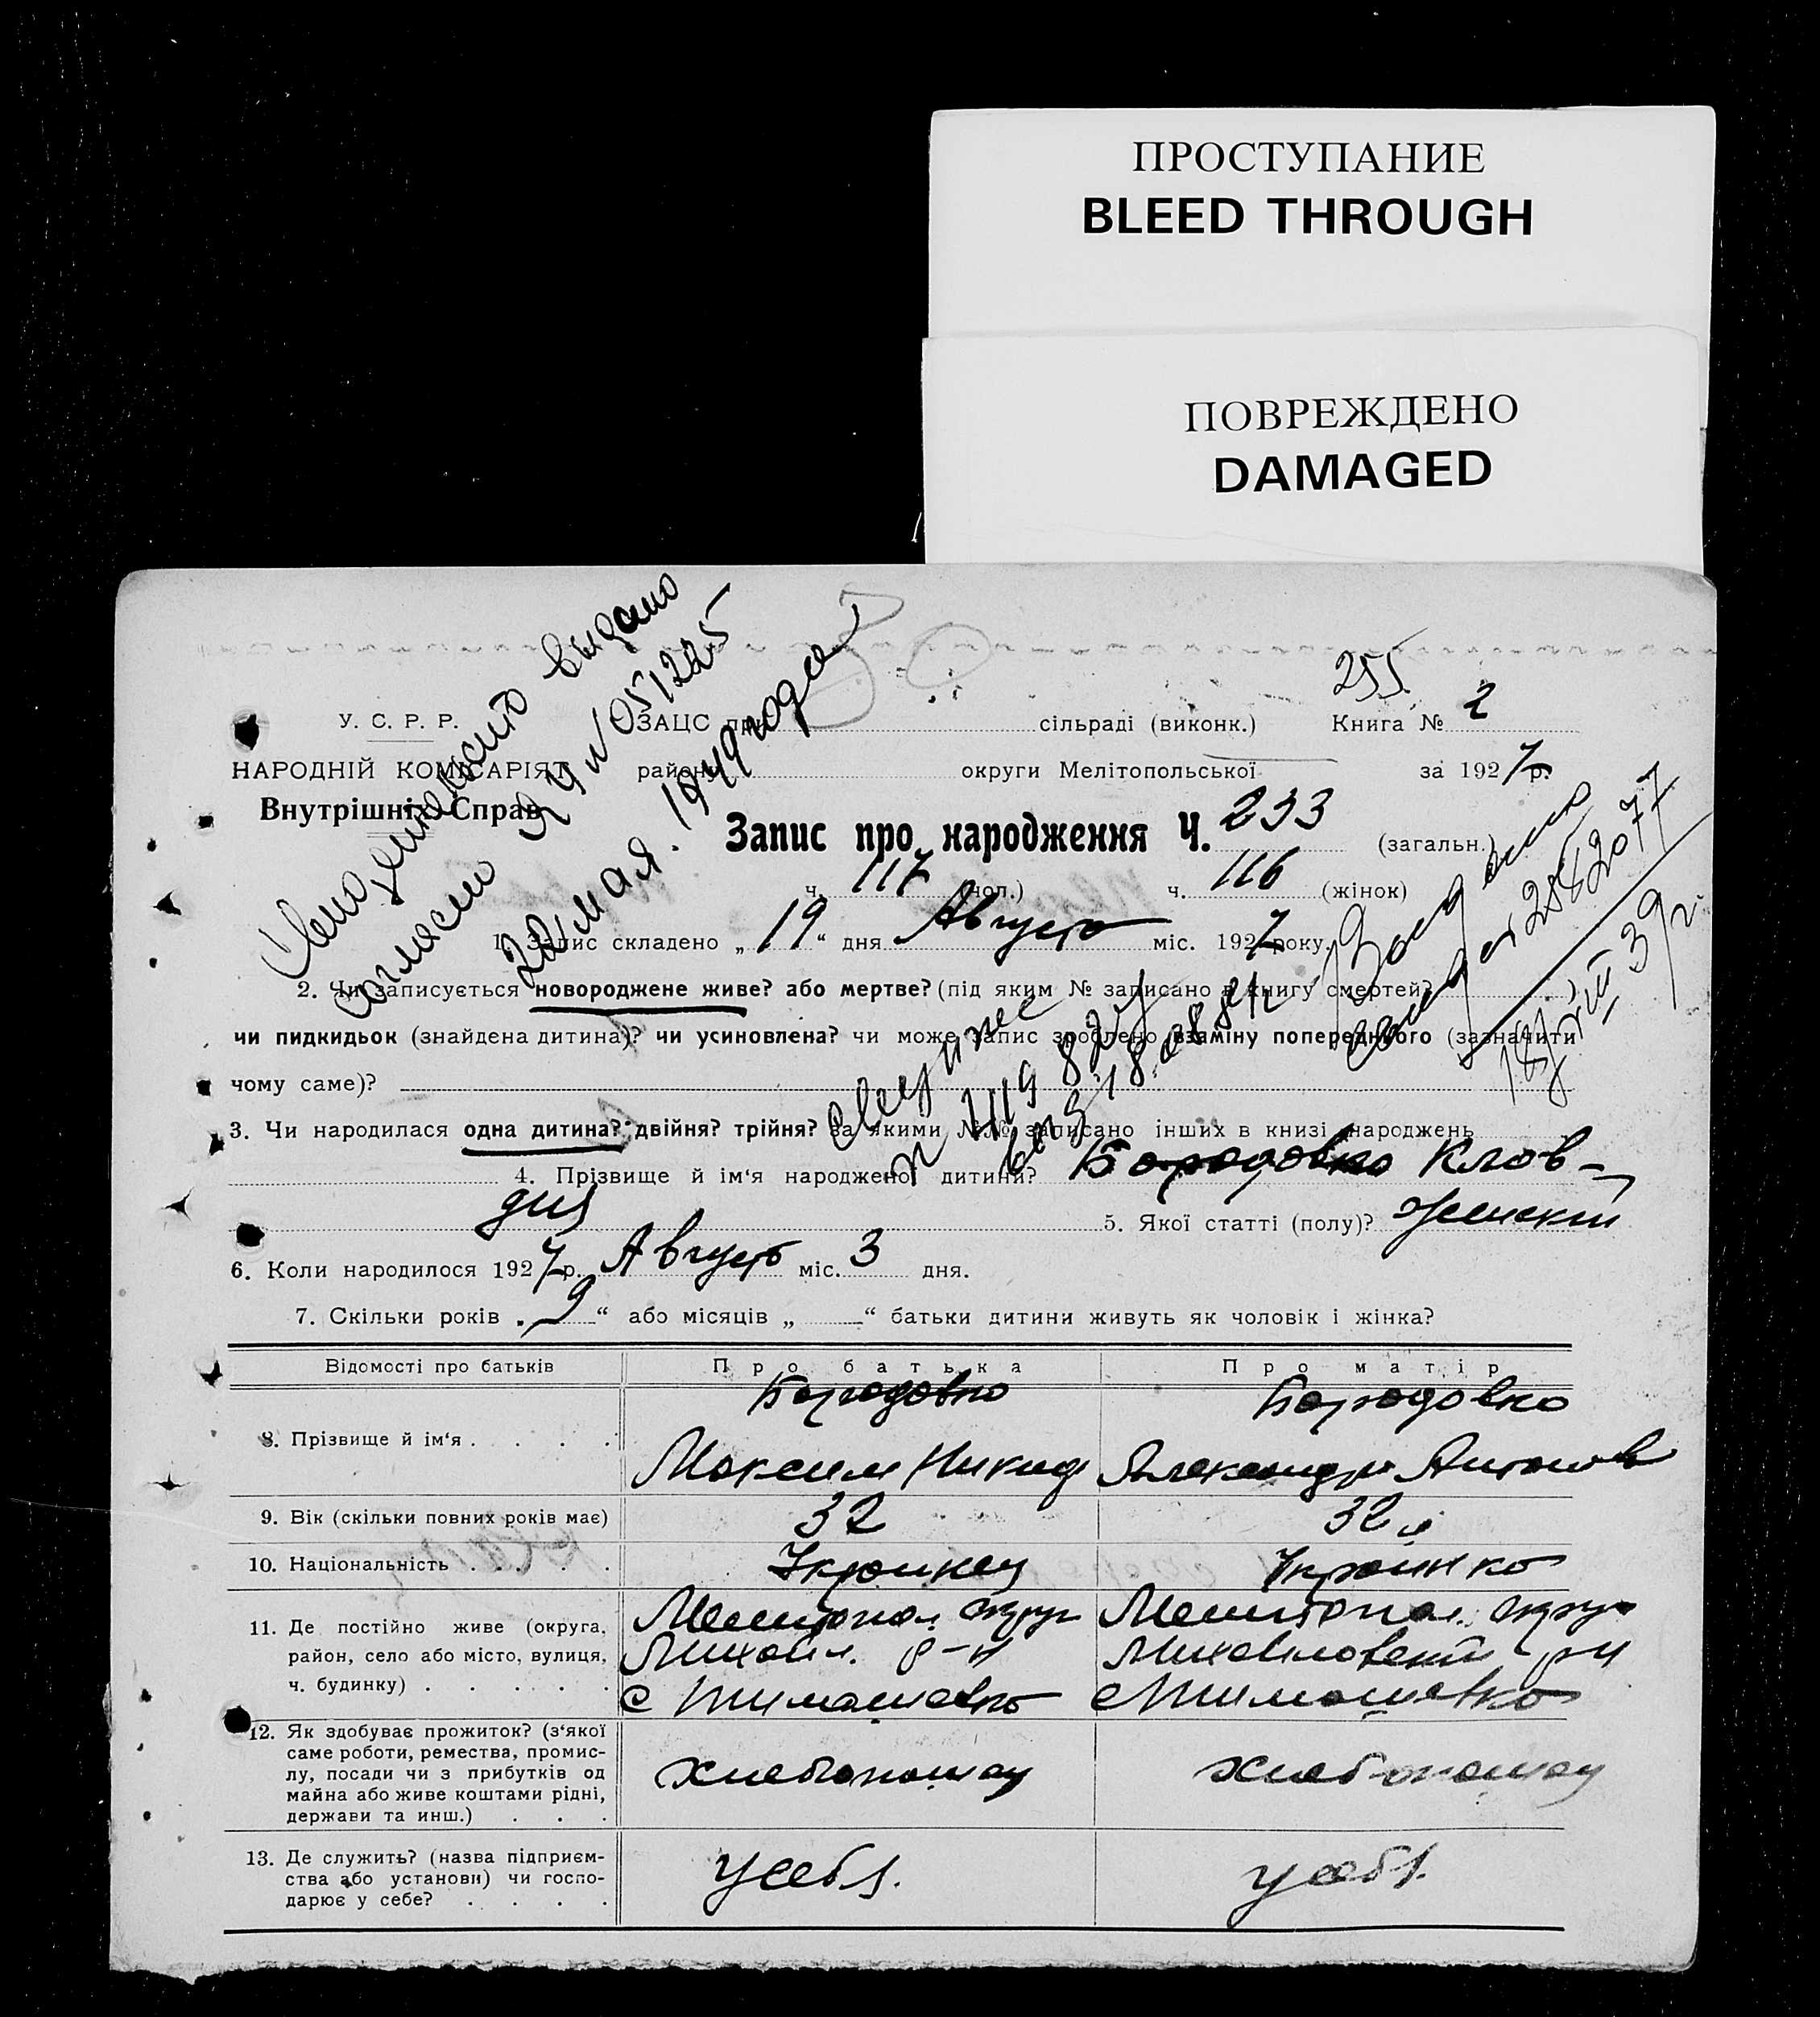 ПРОСТУПАНИЕ
BLEED THROUGH
ПОВРЕЖДЕНО
DAMAGED
255
У. С. Р. Р.
ЗАЦС при сільраді (виконк.) Книга № 2
НАРОДНІЙ КОМІСАРІЯТ
району округи Мелітопольської за 1927 р.
Внутрішніх Справ
Запис про народження Ч. 233 (загальн.)
ч. 117 (чол.) ч. 116 (жінок)
выдано
согласно ЯЧ № 051225
22 мая 1949 года
1. Запис складено „19“ дня Августа міс. 1927 року.
2. Чи записується новороджене живе? або мертве? (під яким № записано в книгу смертей?)
чи пидкидьок (знайдена дитина)? чи усиновлена? чи може запис зроблено взаміну попереднього (зазначити
чому саме)?
3. Чи народилася одна дитина? двійня? трійня? За якими №№ записано інших в книзі народжень
4. Прізвище й ім'я народженої дитини? Бородовко Клов-
дия 5. Якої статті (полу)? Женский
6. Коли народилося 1927 р. Августа міс. 3 дня.
7. Скільки років „9“ або місяців „ “ батьки дитини живуть як чоловік і жінка?
Відомості про батьків Про батька Про матір
Бородовко Бородовко
8. Прізвище й ім'я . . . .
Максим Никид Александра Антонов
9. Вік (скільки повних років має) 32 32
10. Національність . . . . . Украинец Украинка
11. Де постійно живе (округа, Мелитопол. округ Мелитопол. округ
район, село або місто, вулиця, Михайл. р-н Михайловский р-н
ч. будинку) . . . . . с Тимошевко с Тимошевко
12. Як здобуває прожиток? (з'якої
саме роботи, ремества, промис-
лу, посади чи з прибутків од хлебопашец хлебопашец
майна або живе коштами рідні,
держави та инш.) . . .
13. Де служить? (назва підприєм-
ства або установи) чи госпо- у себя. у себя.
дарює у себе? . . . .